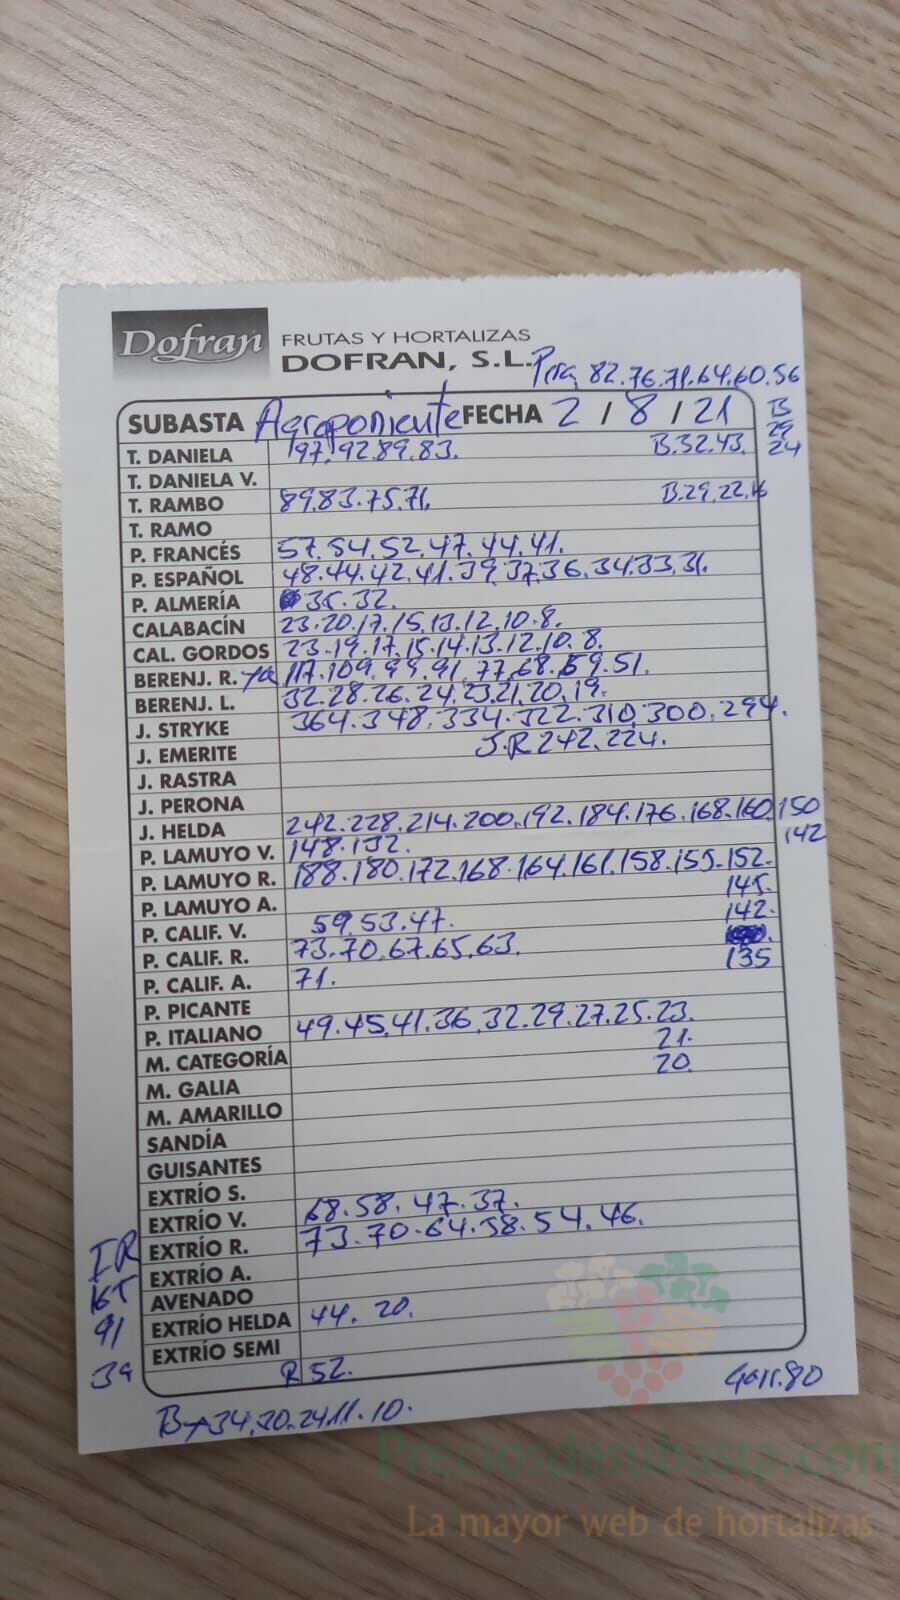 Dofran FRUTAS Y HORTALIZAS
DOFRAN, S.L.
Pera 82.76.71.64.60.56
SUBASTA Agroponiente FECHA 2 / 8 / 21 B
29
24
T. DANIELA 197.92.89.83. B.32.43.
T. DANIELA V.
T. RAMBO 89.83.75.71. B.29.22.16
T. RAMO
P. FRANCÉS 57.54.52.47.44.41.
P. ESPAÑOL 48.44.42.41.39.37.36.34.33.31.
P. ALMERÍA 35.32.
CALABACÍN 23.20.17.15.13.12.10.8.
CAL. GORDOS 23.19.17.15.14.13.12.10.8.
BERENJ. R. 117.109.99.91.77.68.59.51.
BERENJ. L. 32.28.26.24.23.21.20.19.
J. STRYKE 364.348.334.322.310.300.294.
J. EMERITE J.R 242.224.
J. RASTRA
J. PERONA
J. HELDA 242.228.214.200.192.184.176.168.160.150
142
P. LAMUYO V. 148.132.
P. LAMUYO R. 188.180.172.168.164.161.158.155.152.
145.
P. LAMUYO A. 142.
P. CALIF. V. 59.53.47.
P. CALIF. R. 73.70.67.65.63. 135
P. CALIF. A. 71.
P. PICANTE
P. ITALIANO 49.45.41.36.32.29.27.25.23.
21.
M. CATEGORÍA 20.
M. GALIA
M. AMARILLO
SANDÍA
GUISANTES
EXTRÍO S.
EXTRÍO V. 68.58.47.37.
EXTRÍO R. 73.70.64.58.54.46.
IR
EXTRÍO A.
AVENADO
91 EXTRÍO HELDA 44. 20.
EXTRÍO SEMI
39 R 52.
Garr.80
B→34.30.24.11.10.
Preciosdesubasta.com
La mayor web de hortalizas